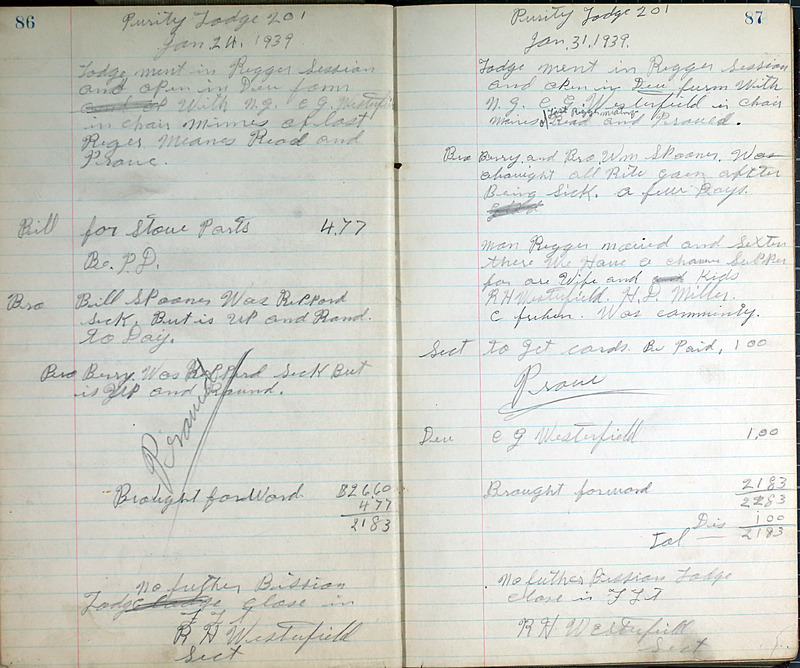 86
Purity Lodge 201
Jan. 24. 1939
Lodge ment in Regger Session
and open in Deu form
With N.G. C G. Westerfield
in chair Mimes of last
Reger Meanes Read and
Prove.
Bill for Stove Parts 4.77
Be. P.D.
Bro Bill Spooner Was Reppord
Sick, But is UP and Rand.
to Day.
Bro Berry. Was Reppord Sick But
is UP and Raund.
Proved
Brought forWord $26.60
4 77
2183
No futher Bission
Lodge Close in
F L T
R H Westerfield
Sect
87
Purity Lodge 201
Jan. 31, 1939.
Lodge ment in Regger Session
and open in Deu form With
N. G. C G. Westerfield in chair
Mimes of Last Regger meaning Read and Proved.
Bro Berry and Bro. Wm Spooner. Was
all Rite gain after
Being Sick. a few Days.
Man Regger maired and Sexten
there We Have a Supper
for are Wife and Kids
R H Westerfield. H. D. Miller.
C. Was commity.
Sect to Get cards. Be Paid, 1 00
Prove
Deu C G Westerfield 1,00
Brought forward 2183
2283
Dis 1 00
Tol — 2183
No futher Bission Lodge
close is F L T
R H Westerfield
Sect